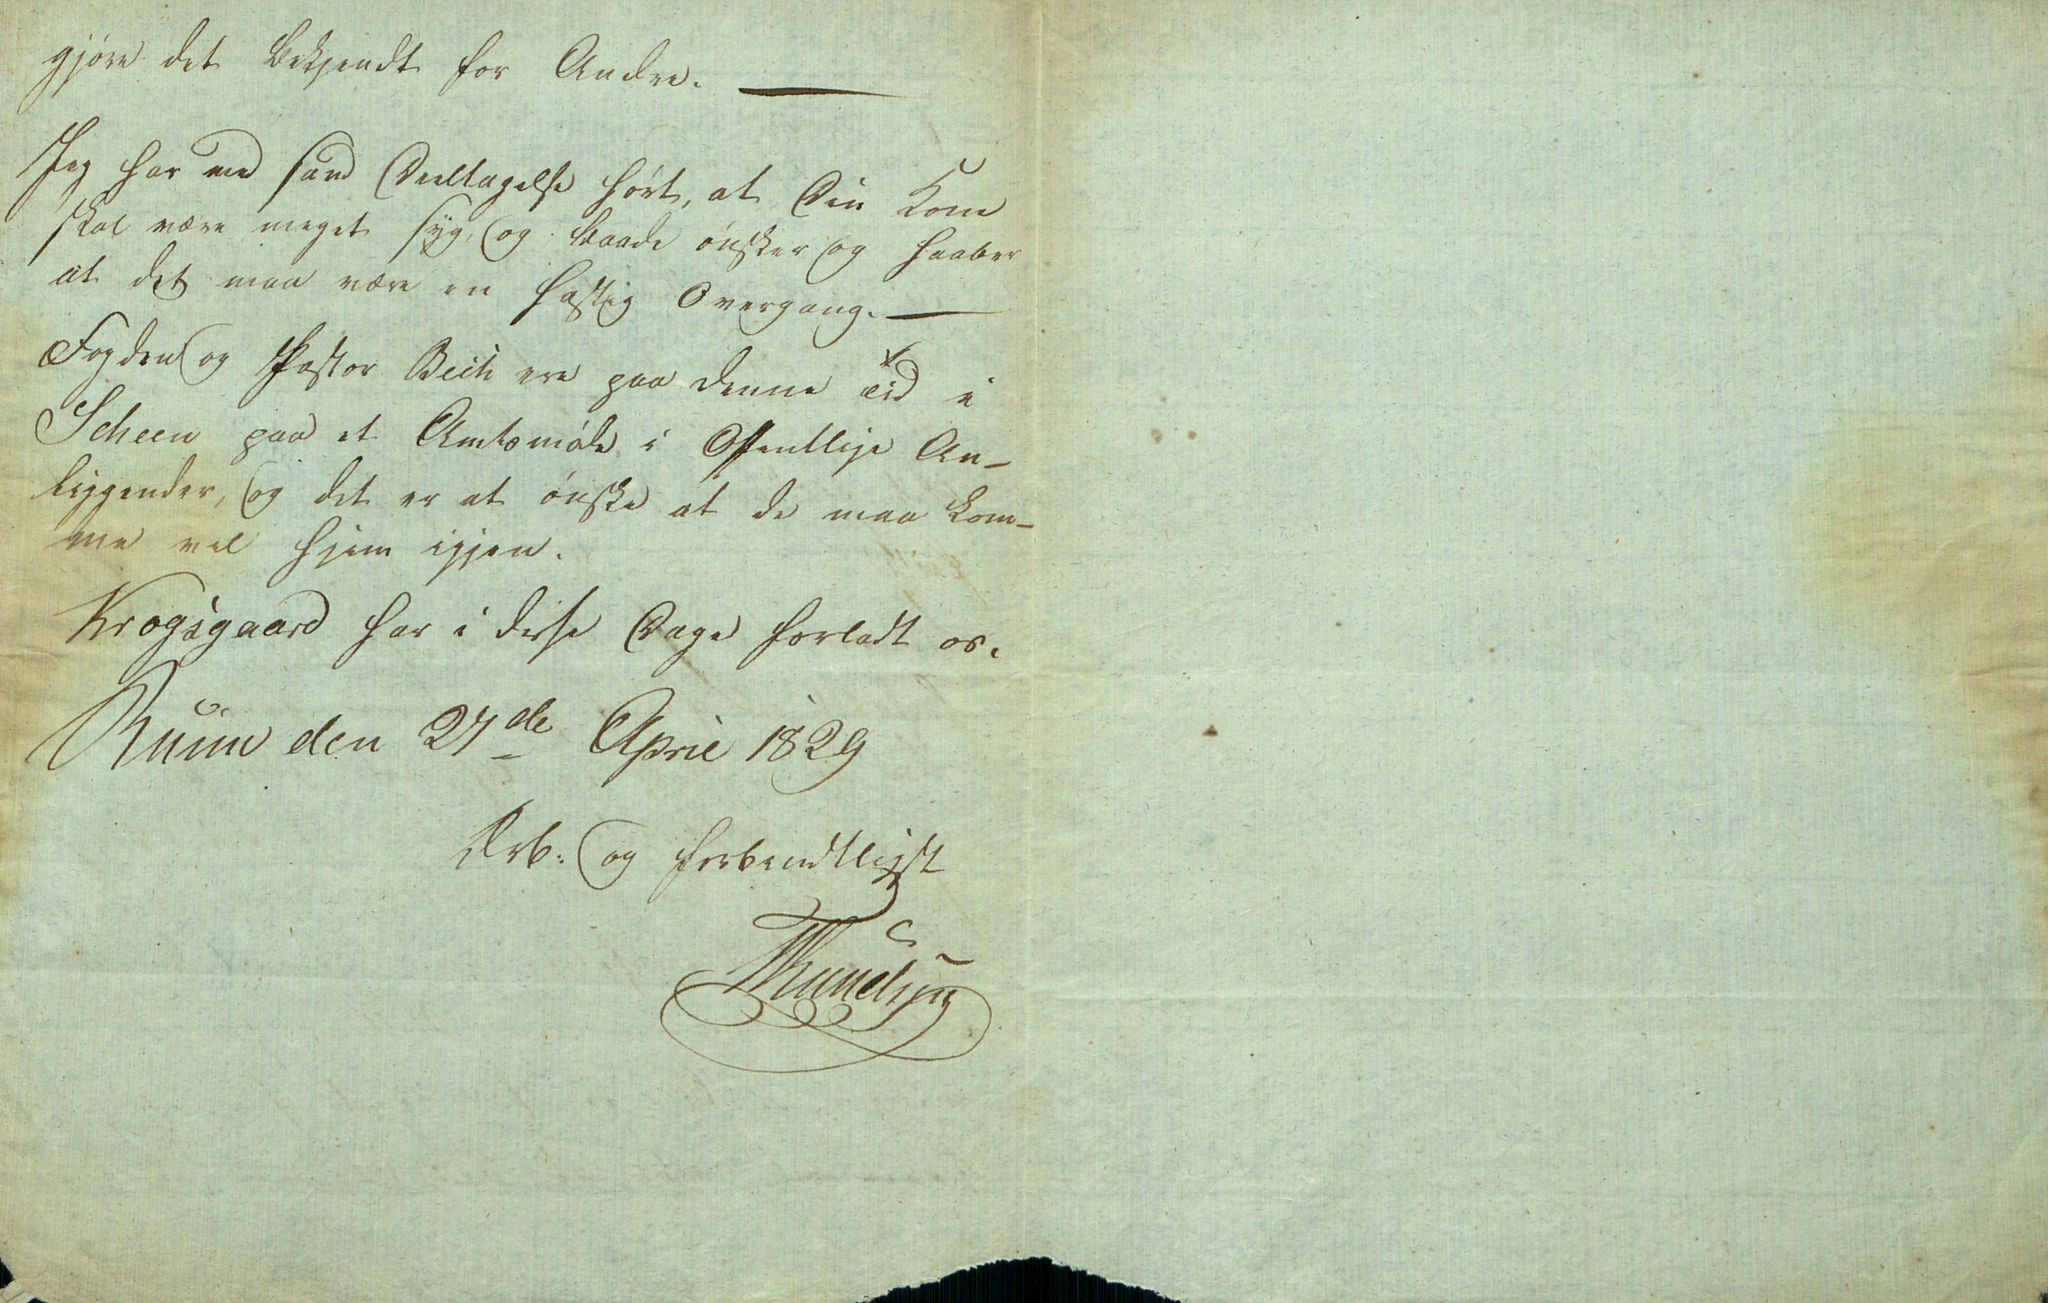 gjøre det bekjendt for Andre. —
Jeg har med sand Deeltagelse hørt, at Din Kone
skal være meget syg, og baade ønsker og haaber
at det maa være en hastig Overgang. —
Fogden og Pastor Beik ere paa denne Tid i
Scheen paa et Amtsmøde i Offentlige An-
liggender, og det er at ønske at de maa kom-
me vel hjem igjen.
Krogsgaard har i disse Dage forladt os.
den 27de April 1829
Erb. og forbindtligst